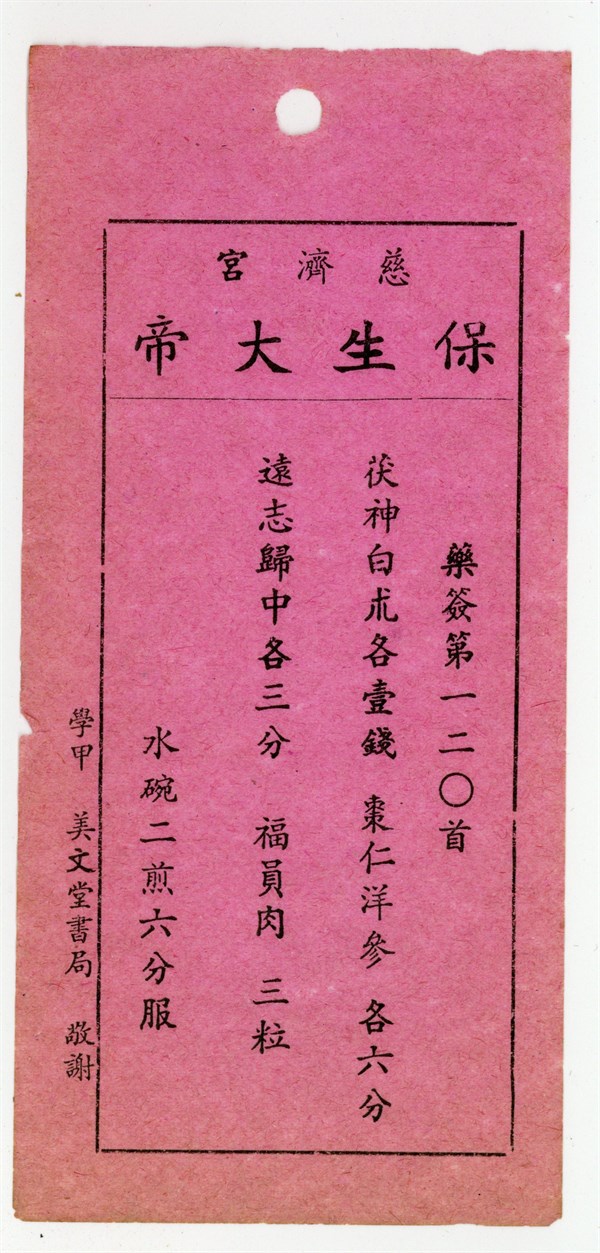 慈濟宮
保生大帝
藥簽第一二〇首
茯神白朮各壹錢 棗仁洋參 各六分
遠志歸中各三分 福員肉 三粒
水碗二煎六分服
學甲 美文堂書局 敬謝